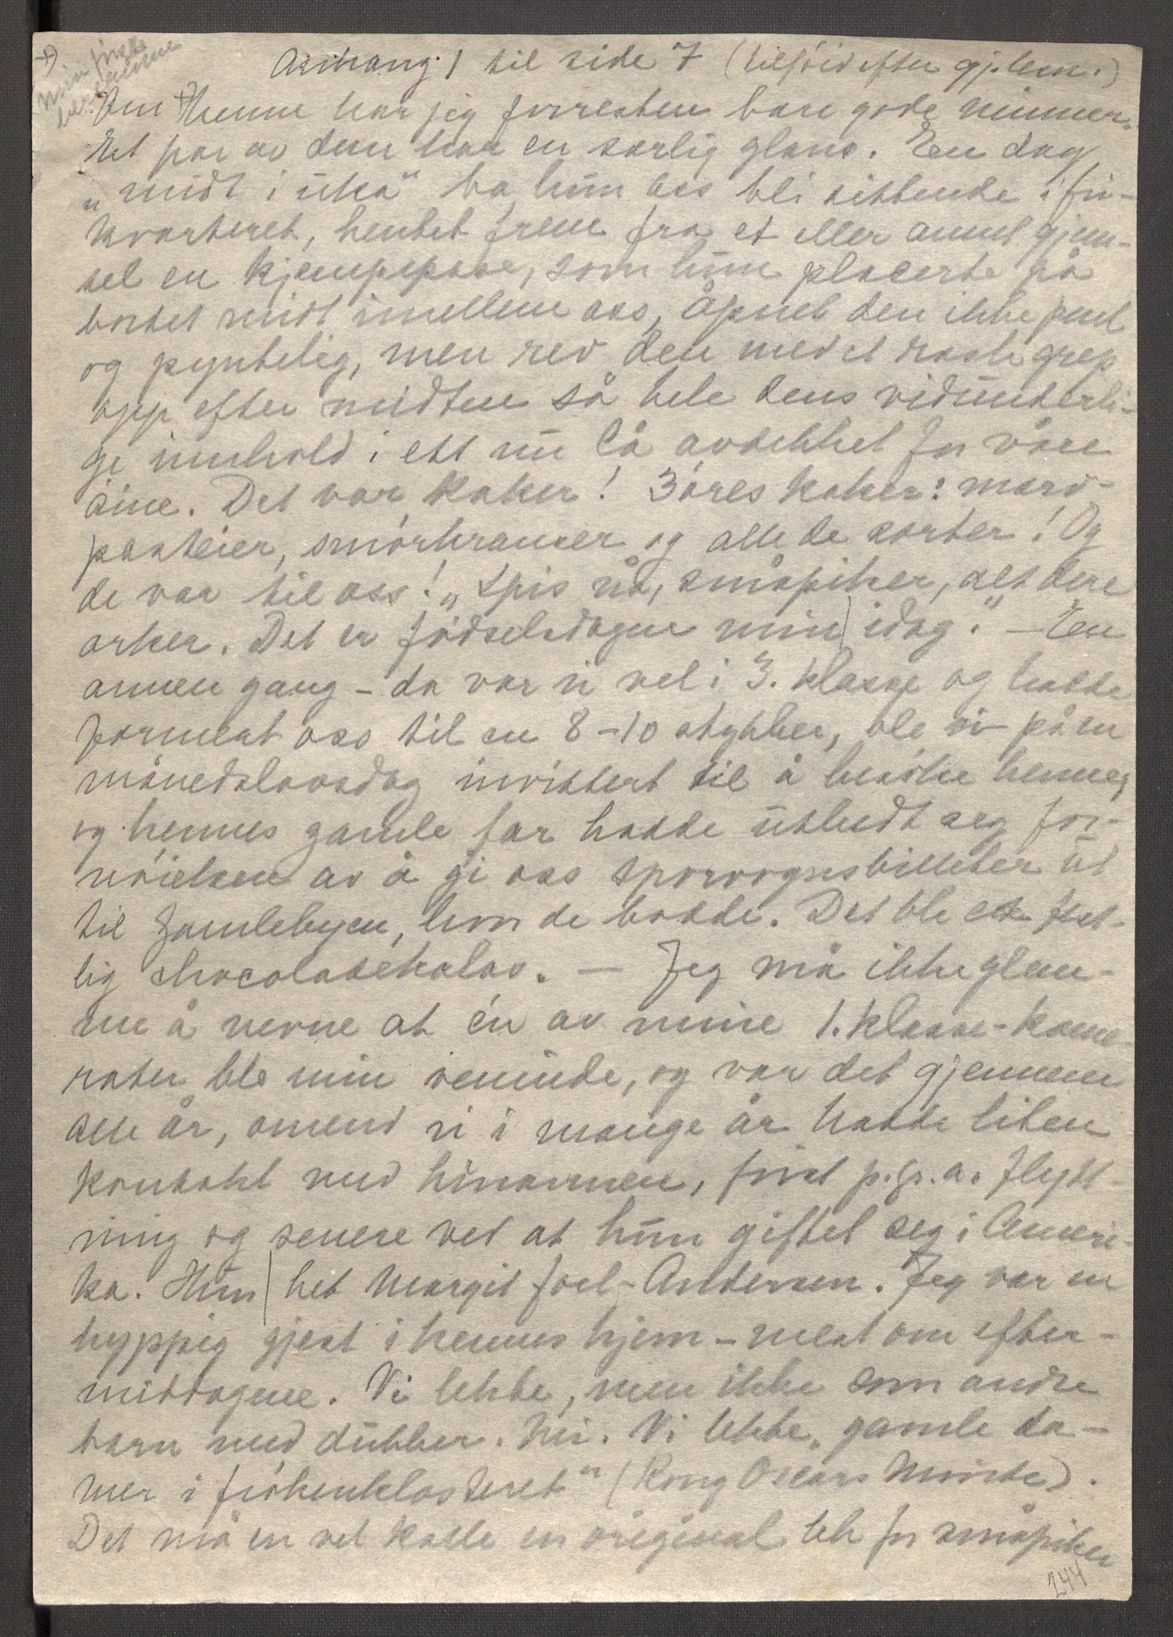 +)
min første
lærerinne
Anhang 1 til side 7 (tilføid efter gj.lem.)
Om + henne har jeg forresten bare gode minner.
Et par av dem har en særlig glans. En dag
„midt i uka" ba hun oss bli sittende i fri-
kvarteret, hentet frem fra et eller annet gjem-
sel en kjempepose, som hun placerte på
bordet midt imellem oss, åpnet den ikke pent
og pyntelig, men rev den med et raskt grep
opp efter midten så hele dens vidunderli-
ge innhold i ett nu lå avdekket for våre
øine. Det var kaker! 3øres kaker: mord-
posteier, smørkranser og alle de sorter! Og
de var til oss! „Spis nå, småpiker, alt dere
orker. Det er fødselsdagen min idag." – En
annen gang – da var vi vel i 3. klasse og hadde
formert oss til en 8–10 stykker, ble vi på en
månedslovsdag invitert til å besøke henne,
og hennes gamle far hadde utbedt seg for-
nøielsen av å gi oss sporvognsbilletter ut
til Gamlebyen, hvor de bodde. Det ble et fest-
lig chocoladekalas. – Jeg må ikke glem-
me å nevne at én av mine 1. klasse-kame-
rater ble min veninde, og var det gjennem
alle år, omend vi i mange år hadde liten
kontakt med hinannen, først p.gr.a. flytt-
ning og senere ved at hun giftet seg i Ameri-
ka. Hun het Margit Joel-Andersen. Jeg var en
hyppig gjest i hennes hjem – mest om efter-
middagene. Vi lekte, men ikke som andre
barn med dukker. Nei. Vi lekte „gamle da-
mer i frøkenklosteret" (Kong Oscars Minde).
Det må en vel kalle en original lek for småpiker
244